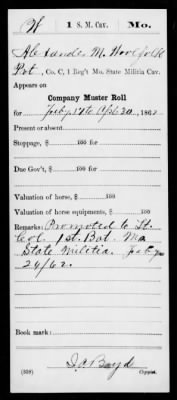 W | 1 S. M. Cav. | Mo.
Alexander M. Woolfolk
Pvt, Co. C, 1 Reg't Mo. State Militia Cav.
Appears on
Company Muster Roll
for Feby 17 to Apl 30, 1862
Present or absent
Stoppage, $ 100 for
Due Gov't, $ 100 for
Valuation of horse, $ 100
Valuation of horse equipments, $ 100
Remarks: Promoted to Lt.
Col. 1st. Bat. Mo
State Militia.
24/62.
Book mark:
J. A. Boyd
(358) Copyist.